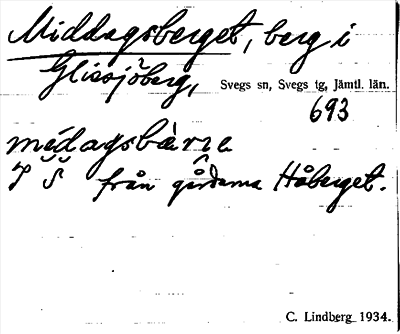 Middagsberget, berg i
Glissjöberg, Svegs sn, Svegs tg, Jämtl. län.
693
médagsbàrre
I S̆ från gårdarna Håberget.
C. Lindberg 1934.